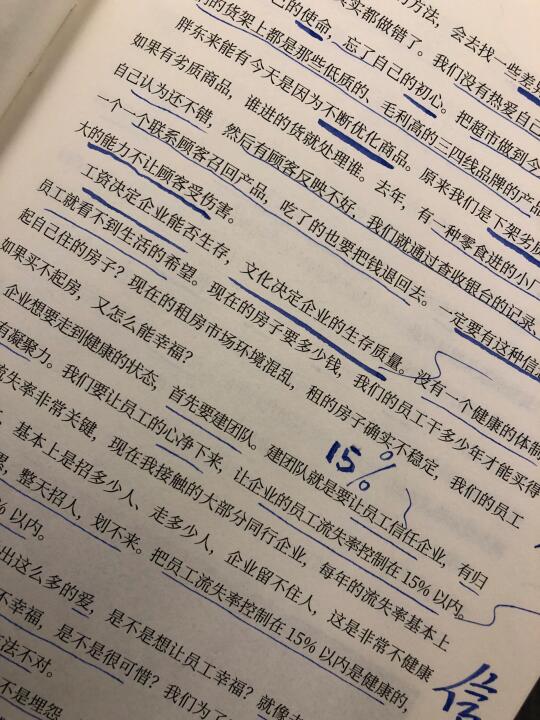 的方法，会去找一些差异
其实都做错了。我们没有热爱自己
己的使命，忘了自己的初心。把超市做到今
的货架上都是那些低质的、毛利高的三四线品牌的产品
胖东来能有今天是因为不断优化商品。原来我们是下架劣质
如果有劣质商品，谁进的货就处理谁。去年，有一种零食进的小厂
自己认为还不错，然后有顾客反映不好，我们就通过查收银台的记录，
一个一个联系顾客召回产品，吃了的也要把钱退回去。一定要有这种信
大的能力不让顾客受伤害。
工资决定企业能否生存，文化决定企业的生存质量。没有一个健康的体制
员工就看不到生活的希望。现在的房子要多少钱，我们的员工干多少年才能买得
起自己住的房子？现在的租房市场环境混乱，租的房子确实不稳定，我们的员工
如果买不起房，又怎么能幸福？
企业想要走到健康的状态，首先要建团队。建团队就是要让员工信任企业，有归
有凝聚力。我们要让员工的心静下来，让企业的员工流失率控制在15%以内。
15%
流失率非常关键，现在我接触的大部分同行企业，每年的流失率基本上
基本上是招多少人、走多少人，企业留不住人，这是非常不健康
整天招人，划不来。把员工流失率控制在15%以内是健康的，
%以内。
出这么多的爱，是不是想让员工幸福？就像
不幸福，是不是很可惜？我们为了
方法不对。
不是埋怨
信